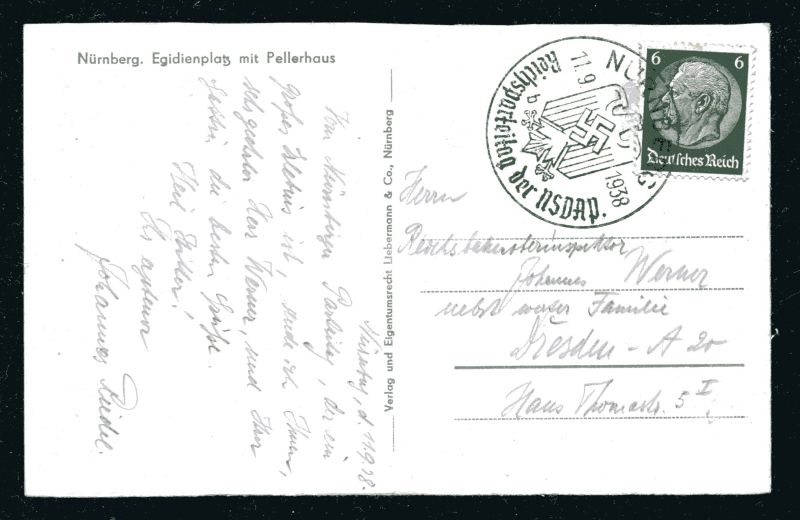 Nürnberg. Egidienplatz mit Pellerhaus
Nürnberg, d. 11.9.38.
Vom Nürnberger Parteitag, der ein
großes Erlebnis ist, sende ich Ihnen,
sehr geehrter Herr Werner, und Ihrer
Gattin die besten Grüße.
Heil Hitler!
Ihr
Johannes Riedel.
Verlag und Eigentumsrecht Liebermann & Co., Nürnberg
NÜRNBERG
11.9. 1938
Reichsparteitag der NSDAP.
b
6 6
Deutsches Reich
Herrn
Johannes Werner
nebst werter Familie
Dresden-A 20
Hans Thomastr. 5 I